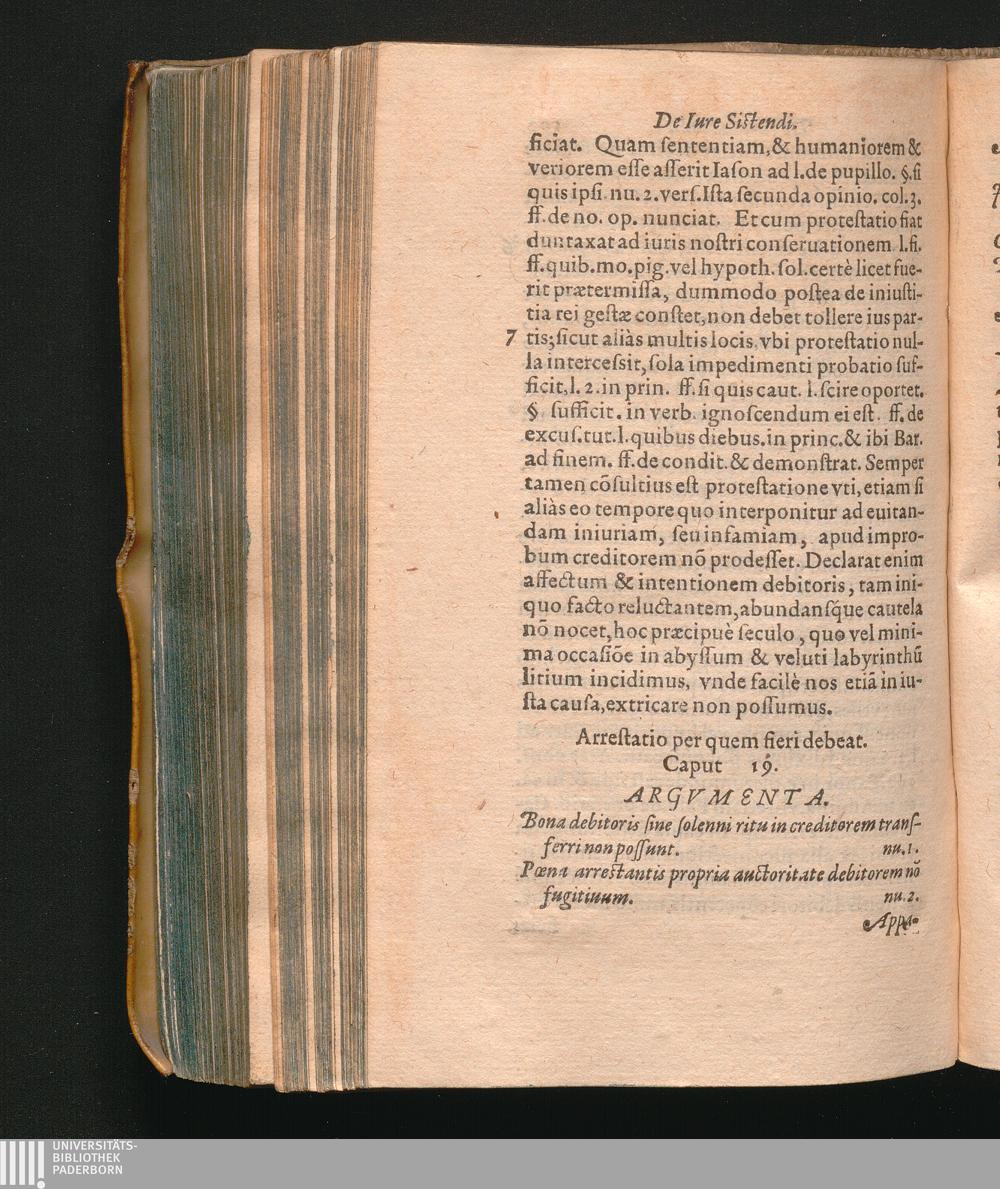 De Iure Siſtendi.
ficiat. Quam ſententiam, & humaniorem &
veriorem eſſe aſſerit Iaſon ad l. de pupillo. §. ſi
quis ipſi. nu. 2. verſ. Iſta ſecunda opinio. col. 3.
ff. de no. op. nunciat. Et cum proteſtatio fiat
duntaxat ad iuris noſtri conſeruationem l. fi.
ff. quib. mo. pig. vel hypoth. ſol. certè licet fue-
rit prætermiſſa, dummodo poſtea de iniuſti-
tia rei geſtæ conſtet, non debet tollere ius par-
7 tis; ſicut aliàs multis locis, vbi proteſtatio nul-
la interceſsit, ſola impedimenti probatio ſuf-
ficit, l. 2. in prin. ff. ſi quis caut. l. ſcire oportet.
§ ſufficit. in verb. ignoſcendum ei eſt. ff. de
excuſ. tut. l. quibus diebus. in princ. & ibi Bar.
ad finem. ff. de condit. & demonſtrat. Semper
tamen cõſultius eſt proteſtatione vti, etiam ſi
aliàs eo tempore quo interponitur ad euitan-
dam iniuriam, ſeu infamiam, apud impro-
bum creditorem nõ prodeſſet. Declarat enim
affectum & intentionem debitoris, tam ini-
quo facto reluctantem, abundanſq́ue cautela
nõ nocet, hoc præcipuè ſeculo, quo vel mini-
ma occaſiõe in abyſſum & veluti labyrinthũ
litium incidimus, vnde facilè nos etiã in iu-
ſta cauſa, extricare non poſſumus.
Arreſtatio per quem fieri debeat.
Caput 19.
ARGVMENTA.
Bona debitoris ſine ſolenni ritu in creditorem tranſ-
ferri non poſſunt. nu. 1.
Pœna arreſtantis propria auctoritate debitorem nõ
fugitiuum. nu. 2.
Appa-
UNIVERSITÄTS-
BIBLIOTHEK
PADERBORN